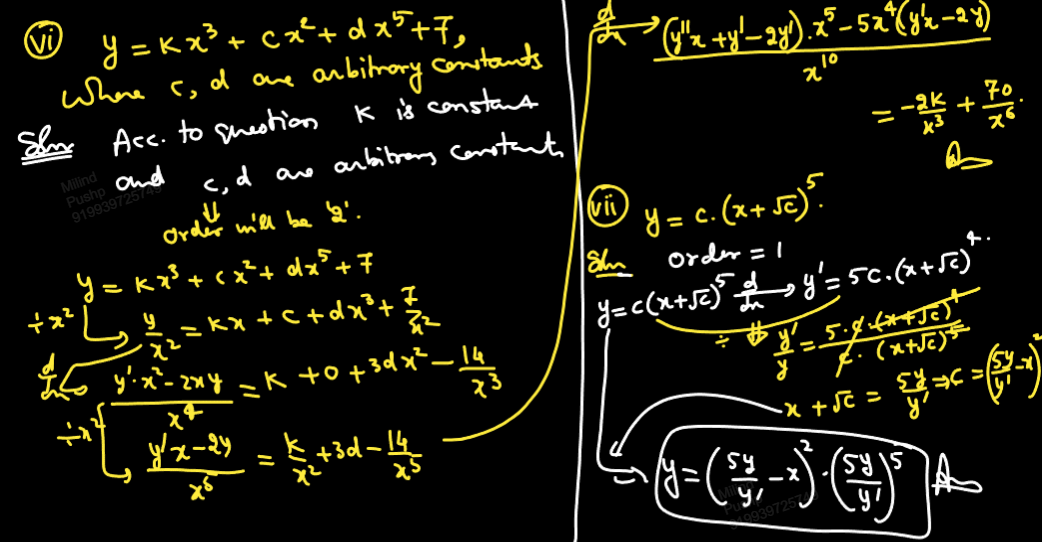 (vi) y = kx³ + cx² + dx⁵ + 7,
where c, d are arbitrary constants
Soln Acc. to question k is constant
and c, d are arbitrary constants
⇓
order will be '2'.
y = kx³ + cx² + dx⁵ + 7
÷x² → y/x² = kx + c + dx³ + 7/x²
d/dx → (y'·x² - 2xy)/x⁴ = k + 0 + 3dx² - 14/x³
÷x² → (y'x - 2y)/x⁵ = k/x² + 3d - 14/x⁵
d/dx → ((y''x + y' - 2y')·x⁵ - 5x⁴(y'x - 2y))/x¹⁰
= -2k/x³ + 70/x⁶.
(vii) y = c·(x + √c)⁵.
Soln order = 1
y = c(x + √c)⁵ d/dx → y' = 5c·(x + √c)⁴.
÷ ⇓ y'/y = 5·c·(x + √c)⁴/c·(x + √c)⁵
x + √c = 5y/y' ⇒ c = (5y/y' - x)²
y = (5y/y' - x)²·(5y/y')⁵ Ans
Milind
Pushp
919939725749
Milind
Pushp
919939725749